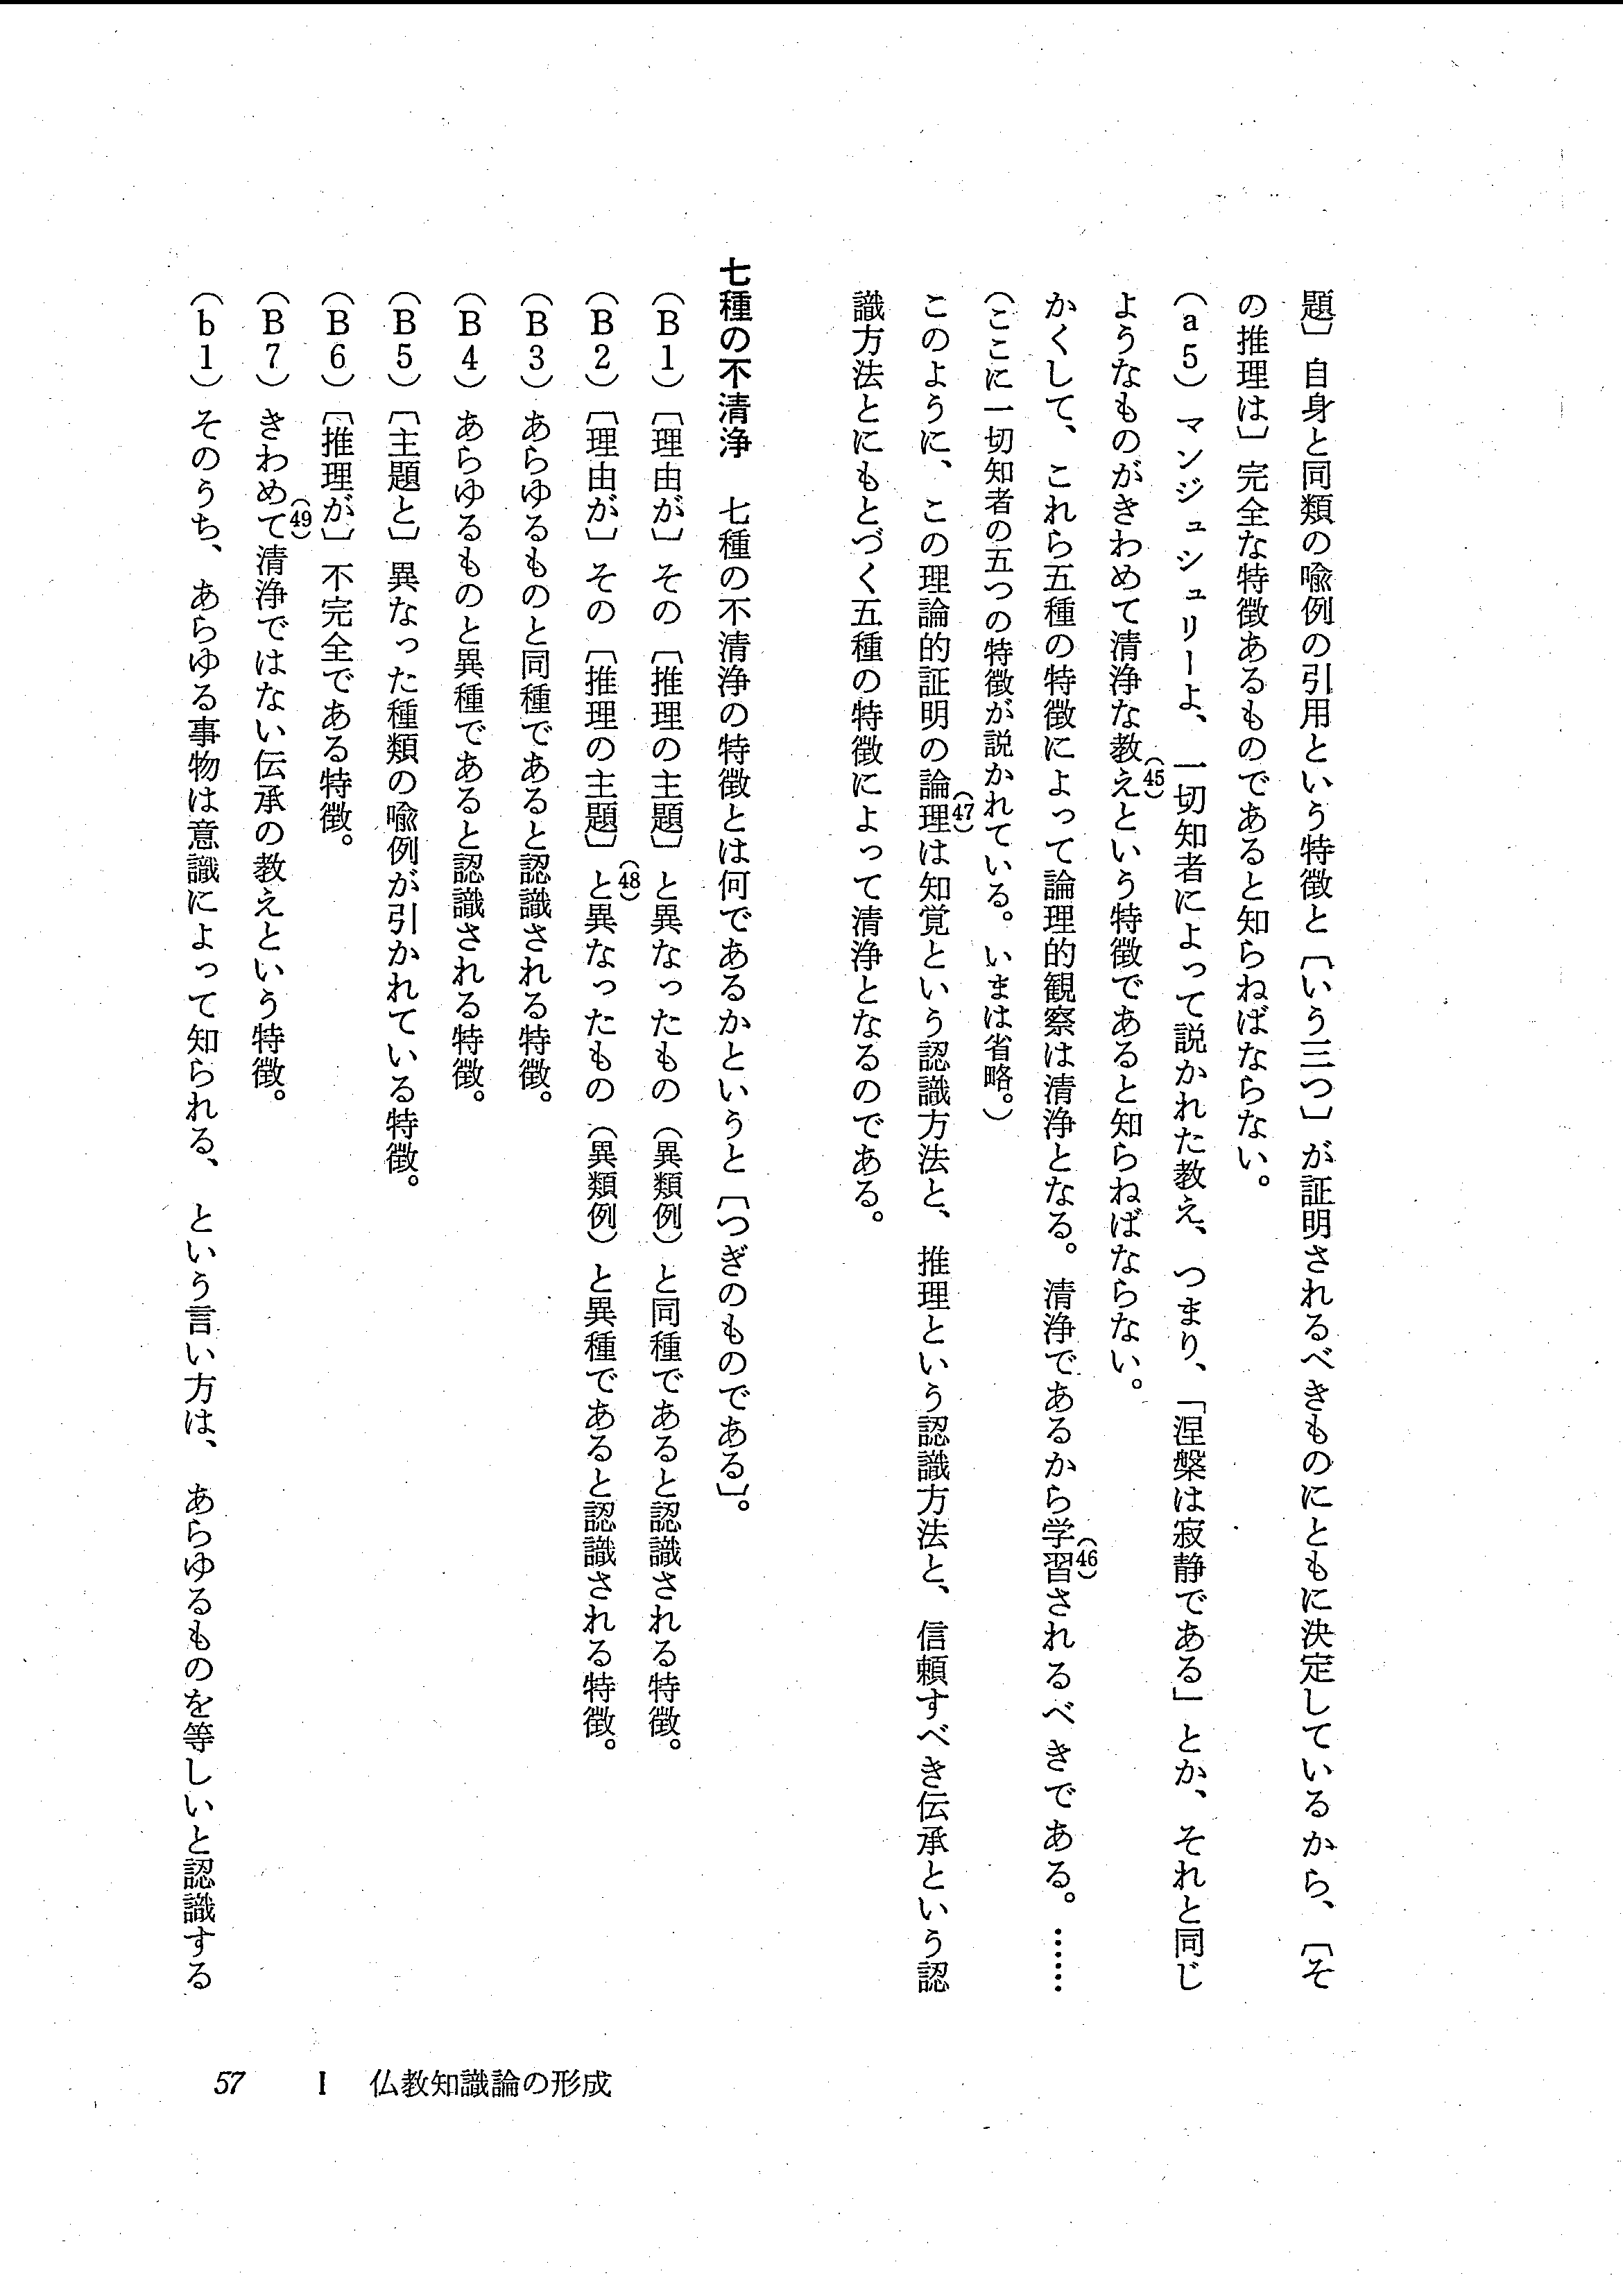 題〕自身と同類の喩例の引用という特徴と〔いう三つ〕が証明されるべきものにともに決定しているから、〔そ
の推理は〕完全な特徴あるものであると知らねばならない。
（a5）マンジュシュリーよ、一切知者によって説かれた教え、つまり、「涅槃は寂静である」とか、それと同じ
ようなものがきわめて清浄な教え（45）という特徴であると知らねばならない。
かくして、これら五種の特徴によって論理的観察は清浄となる。清浄であるから学習（46）されるべきである。……
（ここに一切知者の五つの特徴が説かれている。いまは省略。）
このように、この理論的証明の論理（47）は知覚という認識方法と、推理という認識方法と、信頼すべき伝承という認
識方法とにもとづく五種の特徴によって清浄となるのである。
七種の不清浄　七種の不清浄の特徴とは何であるかというと〔つぎのものである〕。
（B1）〔理由が〕その〔推理の主題〕と異なったもの（異類例）と同種であると認識される特徴。
（B2）〔理由が〕その〔推理の主題〕と（48）異なったもの（異類例）と異種であると認識される特徴。
（B3）あらゆるものと同種であると認識される特徴。
（B4）あらゆるものと異種であると認識される特徴。
（B5）〔主題と〕異なった種類の喩例が引かれている特徴。
（B6）〔推理が〕不完全である特徴。
（B7）きわめて（49）清浄ではない伝承の教えという特徴。
（b1）そのうち、あらゆる事物は意識によって知られる、という言い方は、あらゆるものを等しいと認識する
57　I　仏教知識論の形成